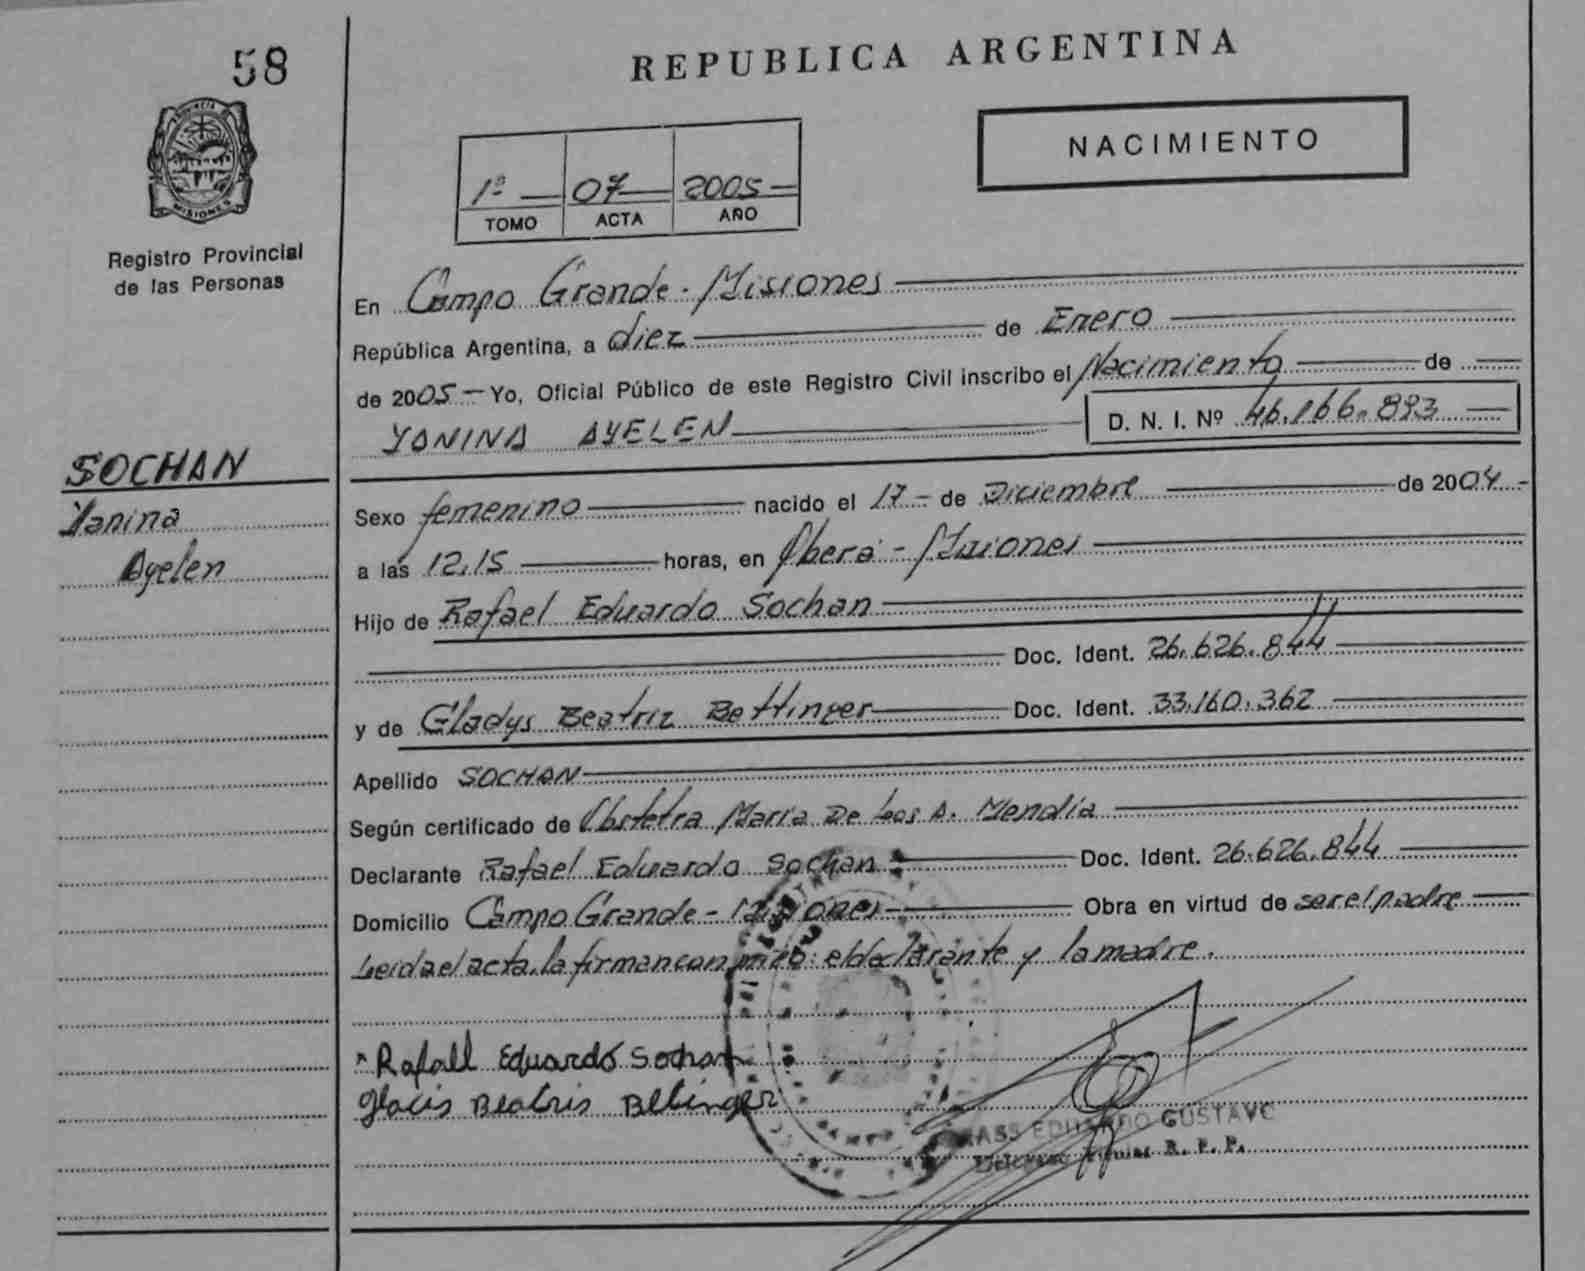 58
REPUBLICA ARGENTINA
NACIMIENTO
1º 07 2005
TOMO ACTA AÑO
PROVINCIA DE
MISIONES
Registro Provincial
de las Personas
En Campo Grande - Misiones
República Argentina, a diez de Enero
de 2005 - Yo, Oficial Público de este Registro Civil inscribo el Nacimiento de
YANINA AYELEN D. N. I. Nº 46.166.893
SOCHAN
Yanina
Ayelen
Sexo femenino nacido el 17 - de Diciembre de 2004 -
a las 12,15 horas, en Oberá - Misiones
Hijo de Rafael Eduardo Sochan
Doc. Ident. 26.626.844
y de Gladys Beatriz Bettinger Doc. Ident. 33.160.362
Apellido SOCHAN
Según certificado de Obstetra Maria De Los A. Mendía
Declarante Rafael Eduardo Sochan Doc. Ident. 26.626.844
Domicilio Campo Grande - Misiones Obra en virtud de ser el padre
Leida el acta, la firman conmigo: el declarante y la madre.
Rafael Eduardo Sochan
Glacis Beatris Betinger
EDUARDO GUSTAVO
R. P. P.